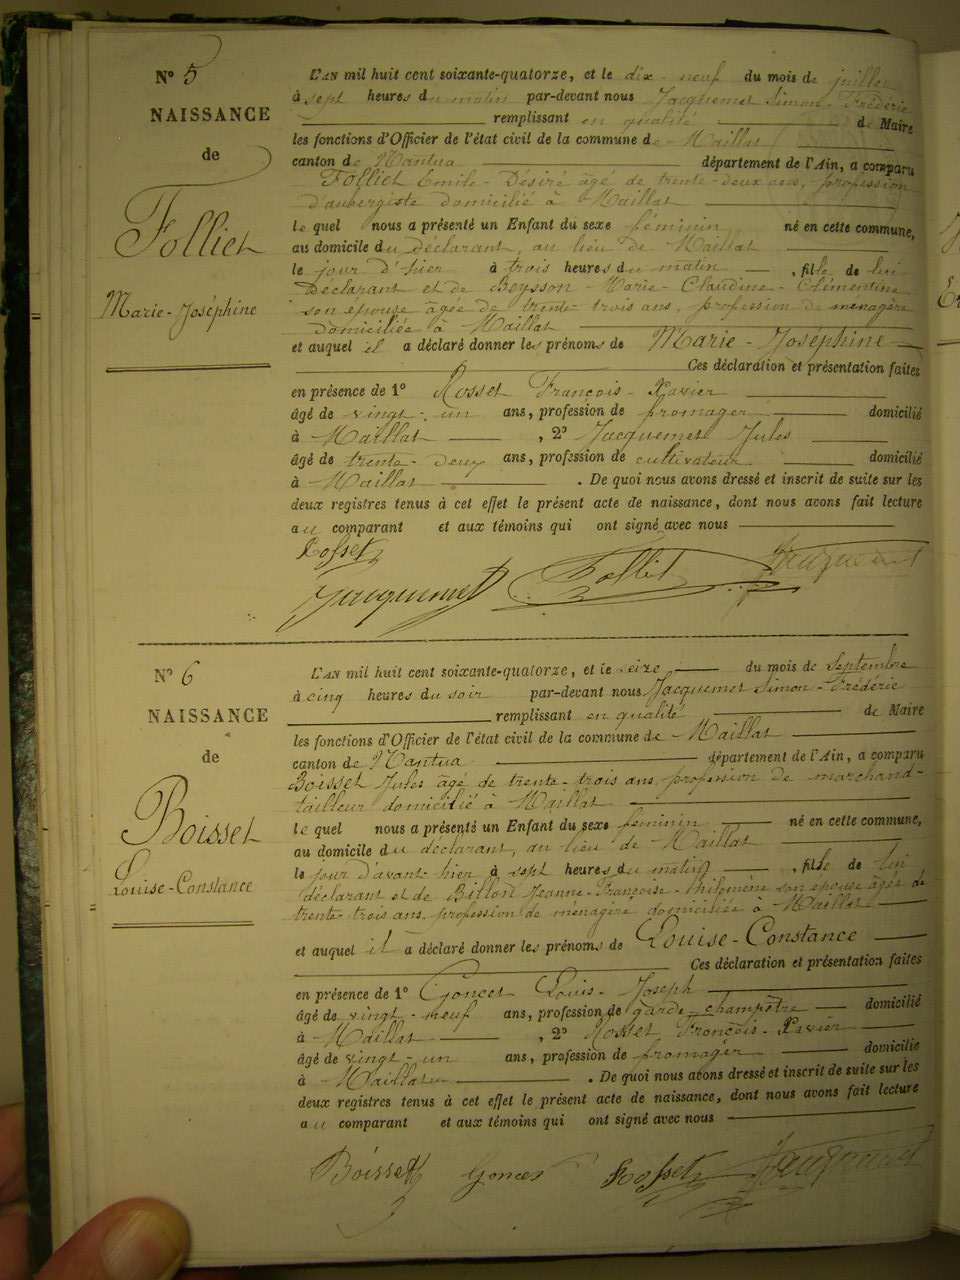 N° 5
NAISSANCE
de
Folliet
Marie-Joséphine
L'AN mil huit cent soixante-quatorze, et le dix-neuf du mois de juillet
à sept heures du matin par-devant nous Jacquemet Simon-Frédéric
remplissant en qualité de Maire
les fonctions d'Officier de l'état civil de la commune de Maillat
canton de Nantua département de l'Ain, a comparu
Folliet Emile-Désiré âgé de trente-deux ans, profession
d'aubergiste domicilié à Maillat
le quel nous a présenté un Enfant du sexe féminin né en cette commune,
au domicile du déclarant, au lieu de Maillat
le jour d'hier à trois heures du matin, fille de lui
Déclarant et de Beysson Marie-Claudine-Clémentine
son épouse âgée de trente trois ans, profession de ménagère
domiciliée à Maillat
et auquel il a déclaré donner les prénoms de Marie-Joséphine
Ces déclaration et présentation faites
en présence de 1° Rosset François-Xavier
âgé de vingt-un ans, profession de fromager domicilié
à Maillat, 2° Jacquemet Jules
âgé de trente-deux ans, profession de cultivateur domicilié
à Maillat. De quoi nous avons dressé et inscrit de suite sur les
deux registres tenus à cet effet le présent acte de naissance, dont nous avons fait lecture
au comparant et aux témoins qui ont signé avec nous
Rosset
Jacquemet Folliet Jacquemet
N° 6
NAISSANCE
de
Boisset
Louise-Constance
L'AN mil huit cent soixante-quatorze, et le seize du mois de Septembre
à cinq heures du soir par-devant nous Jacquemet Simon-Frédéric
remplissant en qualité de Maire
les fonctions d'Officier de l'état civil de la commune de Maillat
canton de Nantua département de l'Ain, a comparu
Boisset Jules âgé de trente-trois ans profession de marchand-
tailleur domicilié à Maillat
le quel nous a présenté un Enfant du sexe féminin né en cette commune,
au domicile du déclarant, au lieu de Maillat
le jour d'avant-hier à sept heures du matin, fille de lui
déclarant et de Billon Jeanne-Françoise-Philomène son épouse âgée de
trente-trois ans, profession de ménagère domiciliée à Maillat
et auquel il a déclaré donner les prénoms de Louise-Constance
Ces déclaration et présentation faites
en présence de 1° Goncet Louis-Joseph
âgé de vingt-neuf ans, profession de garde champêtre domicilié
à Maillat, 2° Rosset François-Xavier
âgé de vingt-un ans, profession de fromager domicilié
à Maillat. De quoi nous avons dressé et inscrit de suite sur les
deux registres tenus à cet effet le présent acte de naissance, dont nous avons fait lecture
au comparant et aux témoins qui ont signé avec nous
Boisset Goncet Rosset Jacquemet